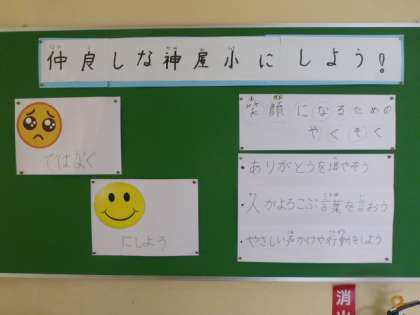 仲良しな神屋小にしよう!
ではなく
にしよう
笑顔になるための
やくそく
ありがとうを増やそう
人がよろこぶ言葉を言おう
やさしい声かけや行動をしよう
消